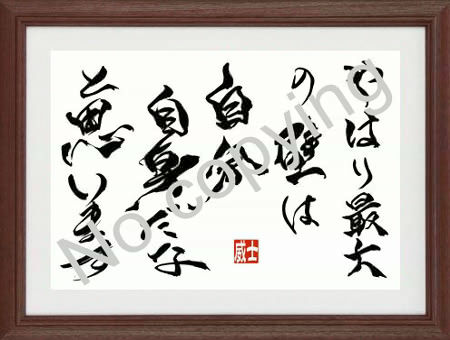 やはり最大
の壁は
自分
自身だな
と思います
士威
No copying